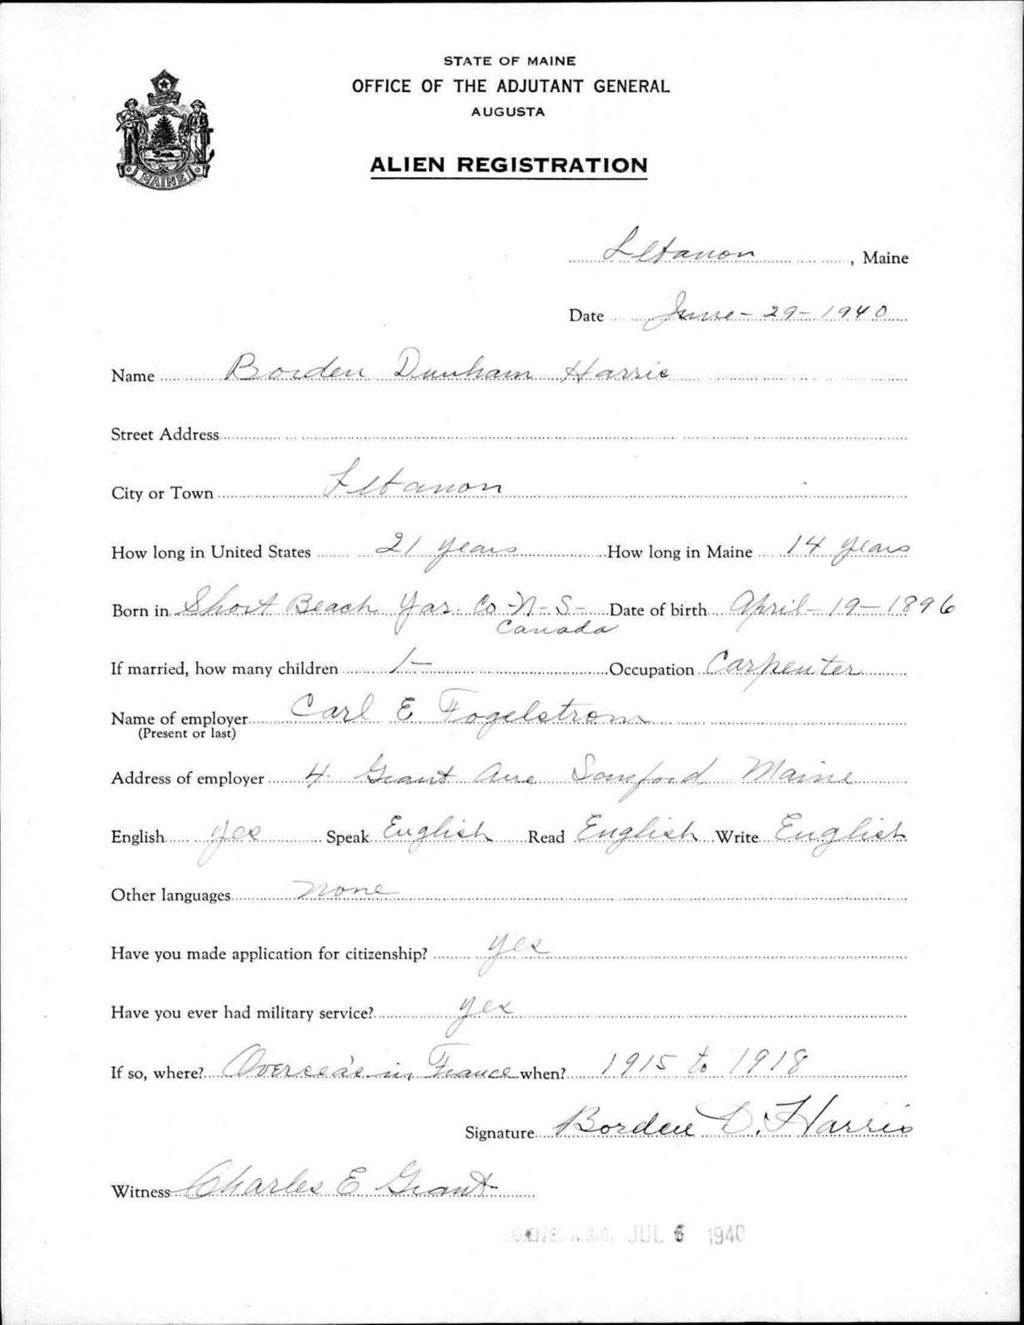 STATE OF MAINE
OFFICE OF THE ADJUTANT GENERAL
AUGUSTA
ALIEN REGISTRATION
MAINE
Lebanon, Maine
Date June - 29 - 1940
Name Borden Dunham Harris
Street Address
City or Town Lebanon
How long in United States 21 years How long in Maine 14 years
Born in Short Beach Yar. Co - N - S - Date of birth April - 19 - 1896
Canada
If married, how many children 1 - Occupation Carpenter
Name of employer Carl E Fogelstrom
(Present or last)
Address of employer 4 Grant Ave Sanford Maine
English yes Speak English Read English Write English
Other languages none
Have you made application for citizenship? yes
Have you ever had military service? yes
If so, where? Overseas in France when? 1915 to 1918
Signature Borden D. Harris
Witness Charles E Grant
A.G.O. JUL 6 1940